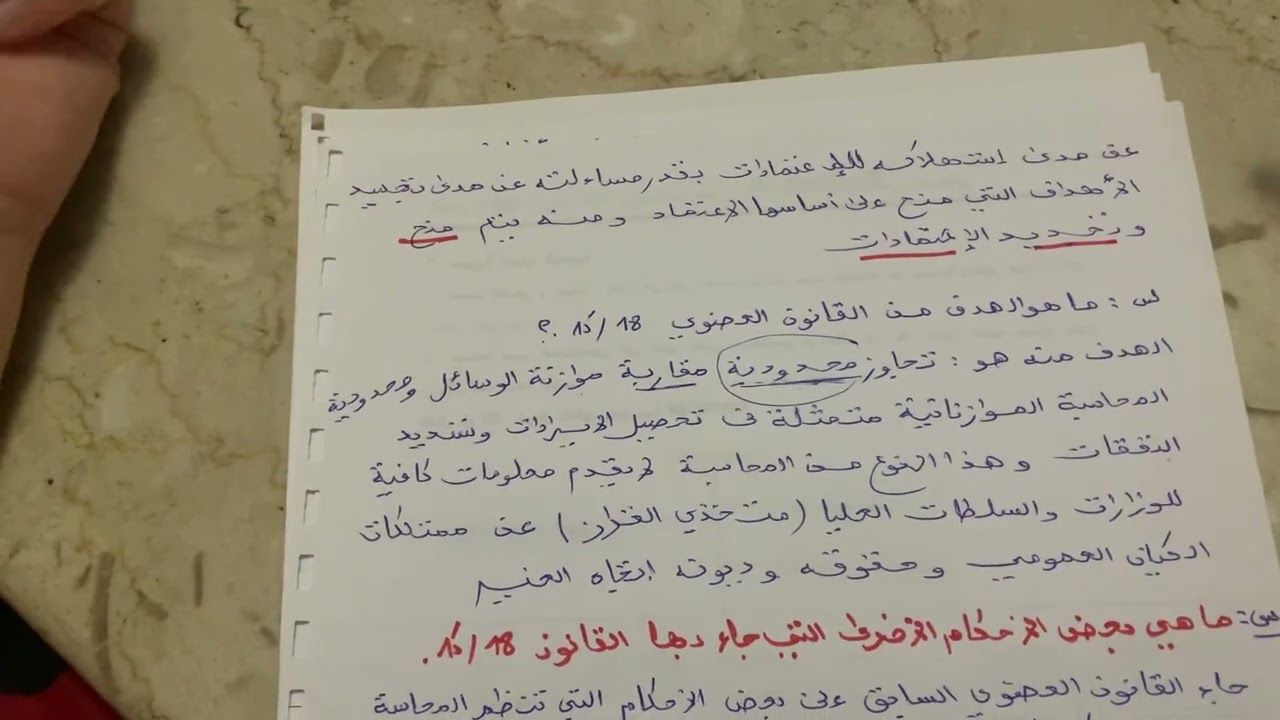 عن مدى استهلاكه للإعتمادات بقدر مساءلته عن مدى تجسيد
الأهداف التي منح على أساسها الإعتماد ومنه يتم منح
وتخديد الإعتمادات
س : ما هو الهدف من القانون العضوي 18/15 ؟
الهدف منه هو : تجاوز محدودية مقاربة موازنة الوسائل ومحدودية
المحاسبة الموازناتية متمثلة في تحصيل الإيرادات وتسديد
النفقات وهذا النوع من المحاسبة لا يقدم معلومات كافية
للوزارات والسلطات العليا (متخذي القرار) عن ممتلكات
الكيان العمومي وحقوقه وديونه اتجاه الغير
س: ما هي بعض الأحكام الأخرى التي جاء بها القانون 18/15.
جاء القانون العضوي السابق على بعض الأحكام التي تنظم المحاسبة